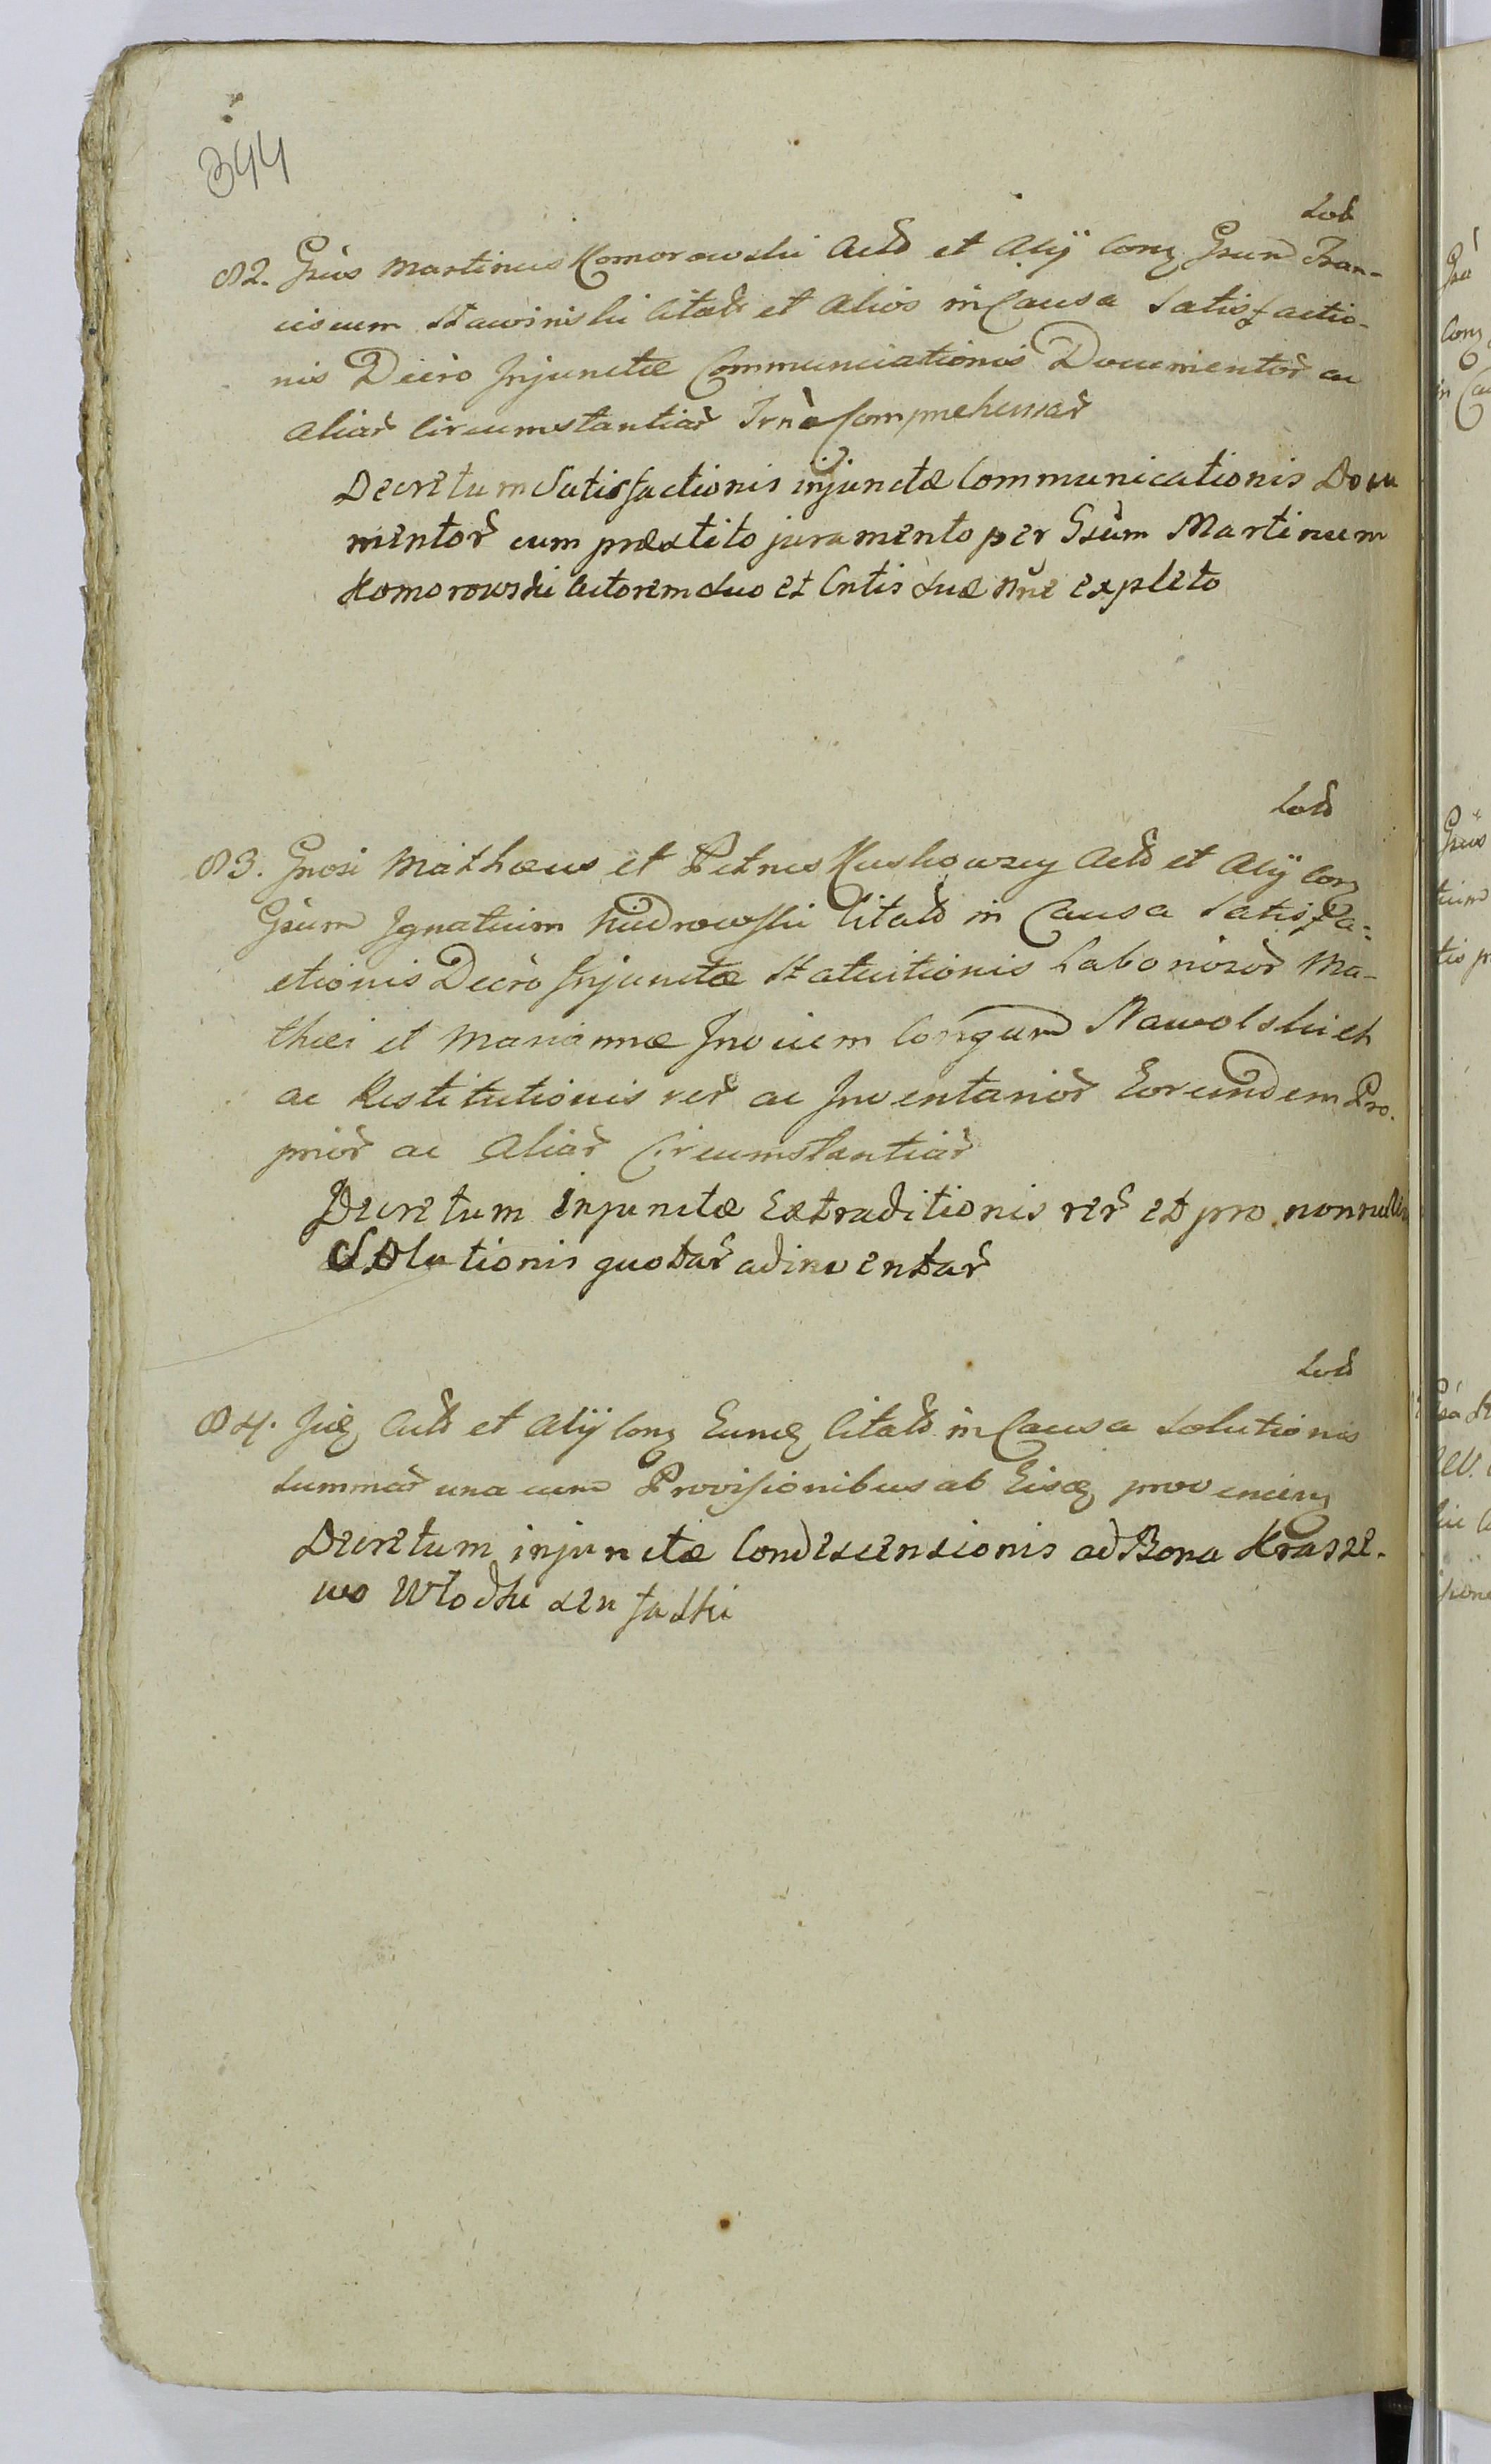 344
Lob
82. Gsus Martinus Komorowski Actb et Alij Conq Gsum Fran-
ciscum Stawinski Citatb et Alios in Causa Satisfactio-
nis Decro Injunctæ Communiciationis Documentor̃ ac
Aliar̃ Circumstantiar̃ Trnò Comprehensar̃
Decretum Satisfactionis injunctæ Communicationis Docu
mentor̃ cum præstito juramento per Gsum Martinum
Komorowski Actorem suo et Cntis suæ nñe expleto
Lodb
83. Gnosi Mathæus et Petrus Kuskowscy Actb et Alij Conq
Gsum Ignatium Kudrowski Citatb in Causa Satisfa=
ctionis Decro Injunctæ Statuitionis Laboriosor̃ Ma-
thæi et Mariannæ Invicem Conjgum Nawolskich
ac Restitutionis rer̃ ac Inventarior̃ Eorundem Pro-
prior̃ ac Aliar̃ Circumstantiar̃
Decretum injunctæ Extraditionis rer̃ et pro nonnullis
Solutionis quotar̃ adinventar̃
Lodb
84. Jidq Actb et Alij Conq Eundq Citatb in Causa Solutionis
Summar̃ una cum Provisionibus ab Eisdq provenienq
Decretum injunctæ Condescensionis ad Bona Krasze-
wo Włodki seu faski